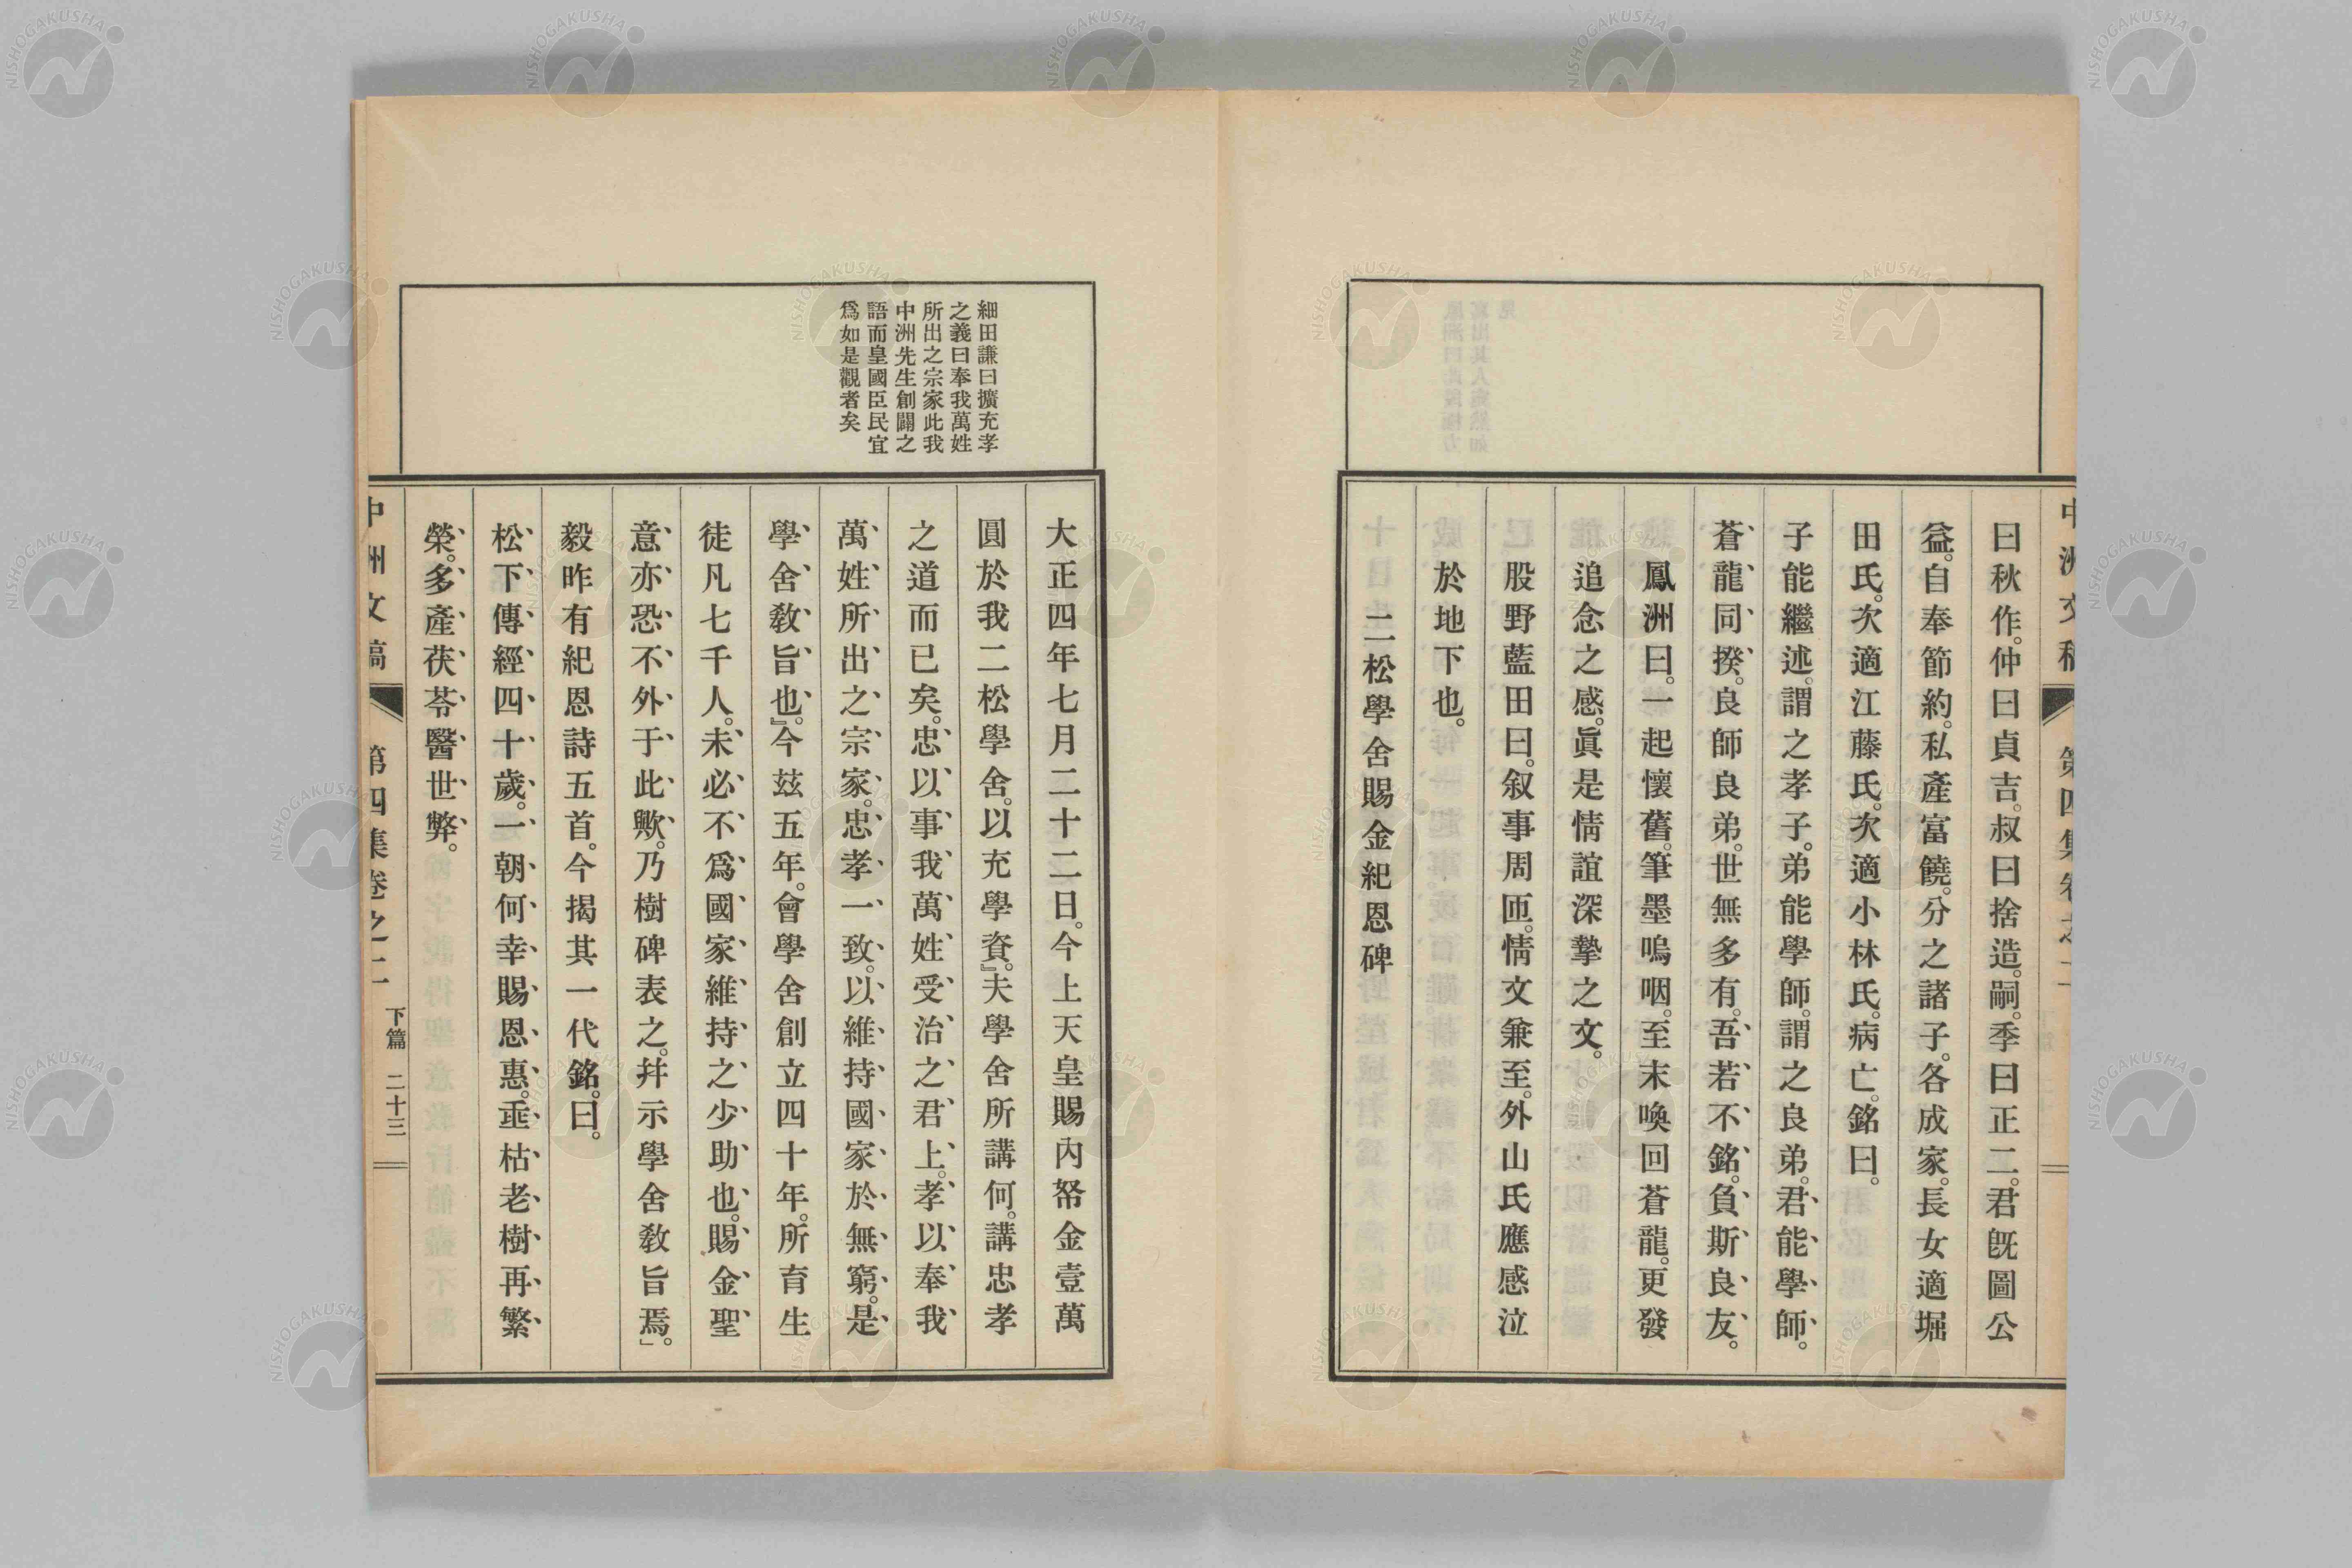 曰秋作。仲曰貞吉。叔曰捨造。嗣。季曰正二。君既圖公
益。自奉節約。私產富饒。分之諸子。各成家。長女適堀
田氏。次適江藤氏。次適小林氏。病亡。銘曰。
子能繼述。謂之孝子。弟能學師。謂之良弟。君能學師。
蒼龍同揆。良師良弟。世無多有。吾若不銘。負斯良友。
鳳洲曰。一起懷舊。筆墨嗚咽。至末喚回蒼龍。更發
追念之感。眞是情誼深摯之文。
股野藍田曰。叙事周匝。情文兼至。外山氏應感泣
於地下也。
二松學舍賜金紀恩碑
細田謙曰擴充孝
之義曰奉我萬姓
所出之宗家此我
中洲先生創闢之
語而皇國臣民宜
爲如是觀者矣
大正四年七月二十二日。今上天皇賜內帑金壹萬
圓於我二松學舍。以充學資。』夫學舍所講何。講忠孝
之道而已矣。忠以事我萬姓受治之君上。孝以奉我
萬姓所出之宗家。忠孝一致。以維持國家於無窮。是
學舍敎旨也。』今玆五年。會學舍創立四十年。所育生
徒凡七千人。未必不爲國家維持之少助也。賜金聖
意亦恐不外于此歟。乃樹碑表之。幷示學舍敎旨焉。」
毅昨有紀恩詩五首。今揭其一代銘。曰。
松下傳經四十歲。一朝何幸賜恩惠。亟枯老樹再繁
榮。多產茯苓醫世弊。
中洲文稿
第四集卷之二
下篇
二十三